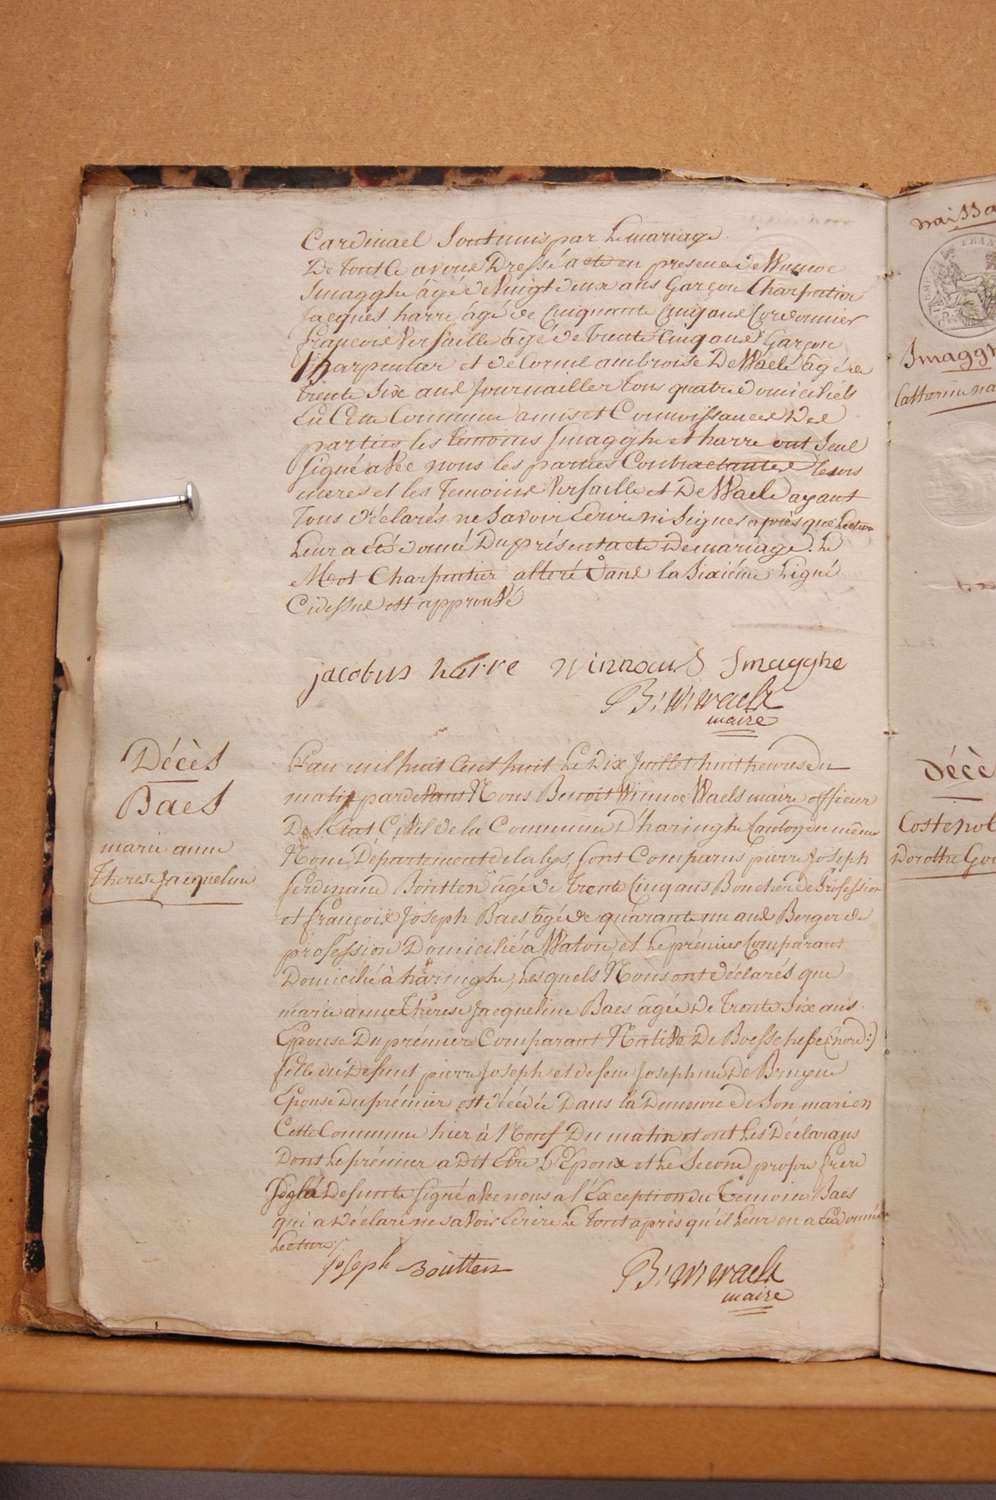 Cardinael Sont unis par le mariage
De tout ce avons Dressé acte en presence de Winnoc
Smagghe âgé de Vingt deux ans Garçon Charpentier
Jacques harre âgé de Cinquante Cinq ans Cordonnier
françois Versaille âgé de Trente Cinq ans Garçon
Charpentier et de Corneil ambroise De Waele âgé de
trente Six ans Journailler tous quatre domiciliés
En Cette Commune amis et Connoissances Des
parties les témoins Smagghe et harre ont Seul
signé avec nous les parties Contractantes leurs
meres et les Temoins Versaille et De Waele ayant
Tous déclarés ne Savoir Ecrire ni Signer après que Lecture
Leur a été donné Du présent acte De mariage. Le
Mot Charpentier alteré dans la Sixiéme Ligne
Cidessus est approuvé
jacobus harre Winnocus Smagghe
B: W: Waels
maire
Décès
Baes
marie anne
Therese Jacqueline
L'an mil huit Cent huit Le Dix Juillet huit heures du
matin pardevant Nous Benoit Winnoc Waels maire officier
De l'Etat Civil de la Commune D'haringhe Canton
Département de la lys, sont Comparus pierre Joseph
ferdinand Boutten âgé de Trente Cinq ans Boucher de Profession
et françois Joseph Baes âgé de quarante un ans Berger de
profession Domicilié à Watou, et Le prémier Comparant
Domicilié à haringhe, Lesquels Nous ont déclarés que
marie anne Thérese Jacqueline Baes âgée De Trente Six ans
Epouse Du prémier Comparant Native De Boesschepe (nord:)
fille du Defunt pierre Joseph et de feue Josephine De Bruyne
Epouse Du prémier est décédée Dans la Demeure de Son mari en
Cette Commune hier à Neuf Du matin et ont Les Déclarans
Dont Le prémier a Dit Etre L'Epoux et Le Second propre frere
de la Defunte signé avec nous a l'Exception du Temoin Baes
qui a déclaré ne savoir Ecrire Le Tout après qu'il Leur en a été donné
Lecture
Joseph Boutten
B: W: Waels
maire
naissa
Smaggh
Catherine
Décè
Costenob
Dorothe